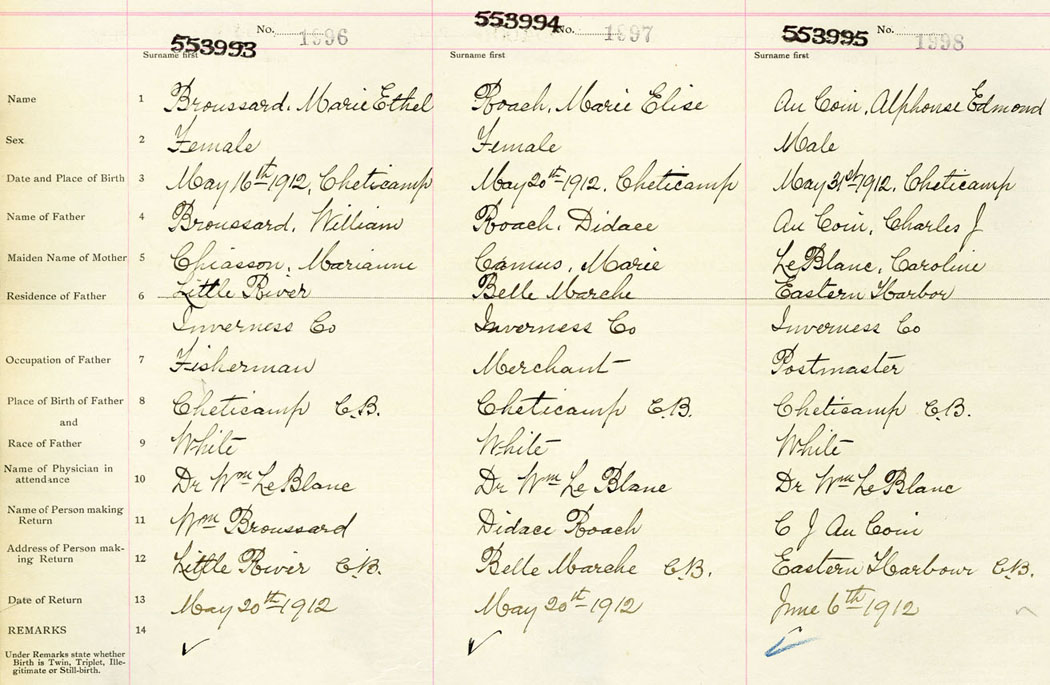 553993 No. 1996 553994 No. 1997 553995 No. 1998
Surname first Surname first Surname first
Name 1 Broussard, Marie Ethel Roach, Marie Elise Au Coin, Alphonse Edmond
Sex 2 Female Female Male
Date and Place of Birth 3 May 16th 1912, Cheticamp May 20th 1912, Cheticamp May 31st 1912, Cheticamp
Name of Father 4 Broussard, William Roach, Didace Au Coin, Charles J
Maiden Name of Mother 5 Chiasson, Marianne Camus, Marie LeBlanc, Caroline
Residence of Father 6 Little River Belle Marche Eastern Harbor
Inverness Co Inverness Co Inverness Co
Occupation of Father 7 Fisherman Merchant Postmaster
Place of Birth of Father 8 Cheticamp C.B. Cheticamp C.B. Cheticamp C.B.
and
Race of Father 9 White White White
Name of Physician in
attendance 10 Dr Wm LeBlanc Dr Wm LeBlanc Dr Wm LeBlanc
Name of Person making
Return 11 Wm Broussard Didace Roach C J Au Coin
Address of Person mak-
ing Return 12 Little River C.B. Belle Marche C.B. Eastern Harbour C.B.
Date of Return 13 May 20th 1912 May 20th 1912 June 6th 1912
REMARKS 14 ✓ ✓ ✓
Under Remarks state whether
Birth is Twin, Triplet, Ille-
gitimate or Still-birth.